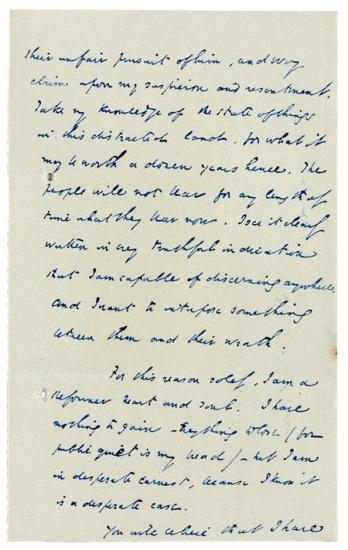 their unfair pursuit of him, and very
claim upon my suspicion and resentment.
Take my knowledge of the state of things
in this distracted land, for what it
may be worth a dozen years hence. The
people will not bear for any length of
time what they bear now. I see it clearly
written in every truthful indication
that I am capable of discerning anywhere.
And I want to interpose something
between them and their wrath.
For this reason solely, I am a
Reformer heart and soul. I have
nothing to gain – everything to lose (for
public quiet is my bread) – but I am
in desperate earnest, because I know it
is a desperate case.
You will believe that I have